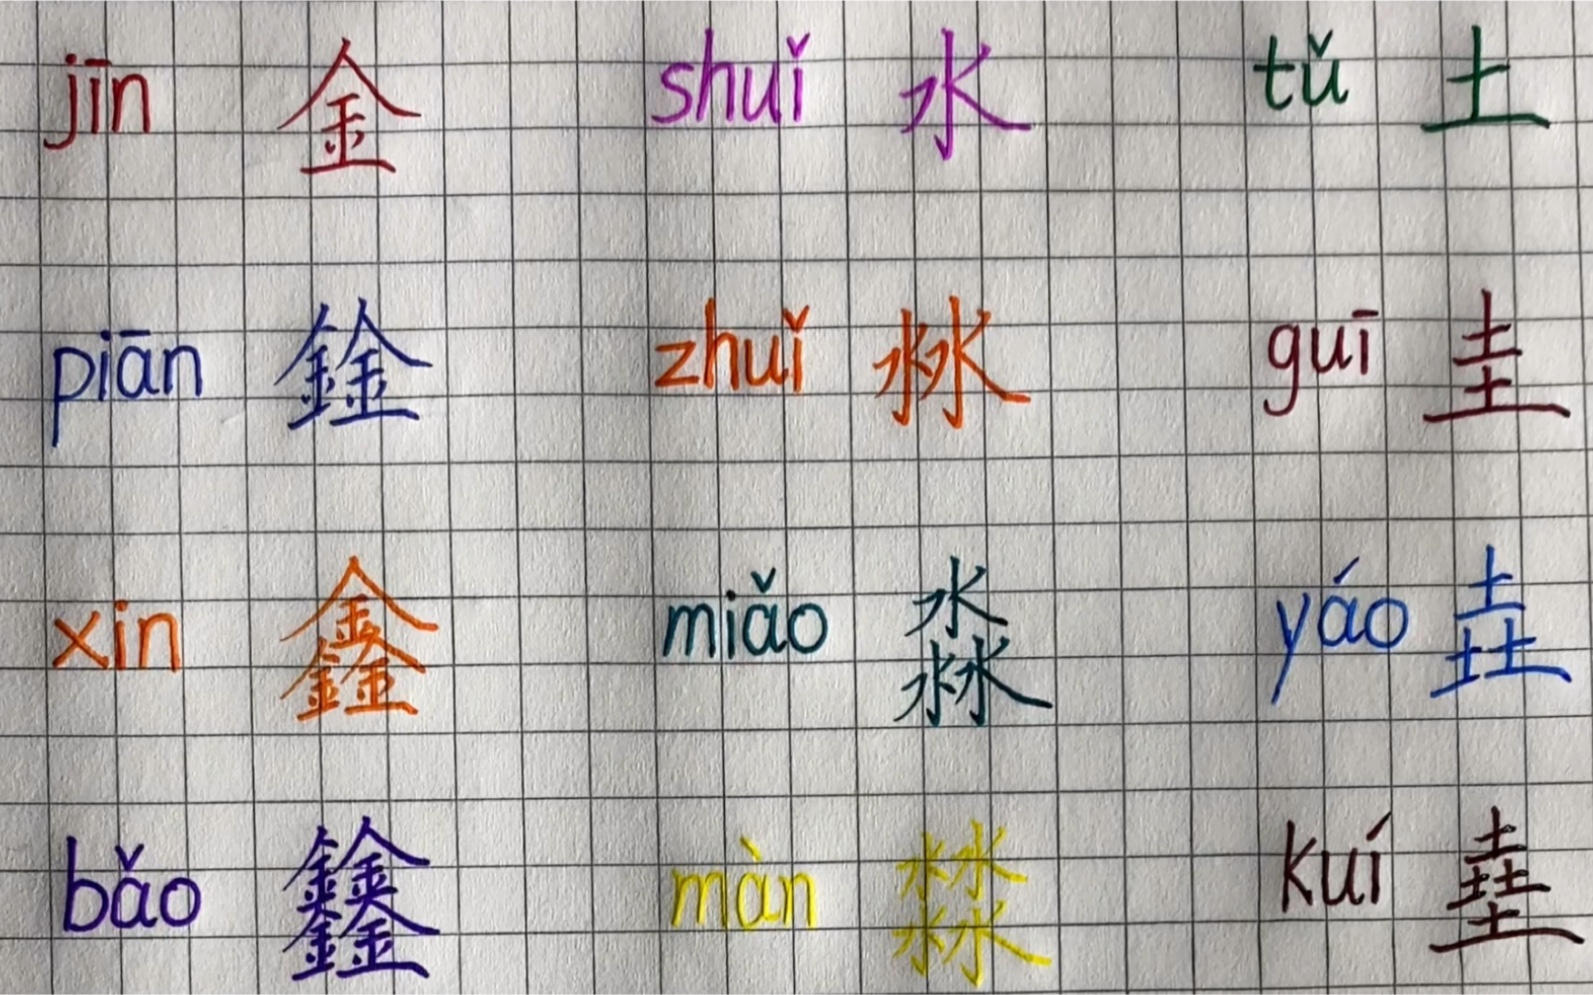 jīn 金 shuǐ 水 tǔ 土
piān 鍂 zhuǐ 沝 guī 圭
xin 鑫 miǎo 淼 yáo 垚
bǎo 𨰻 màn 㵘 kuí 㙓